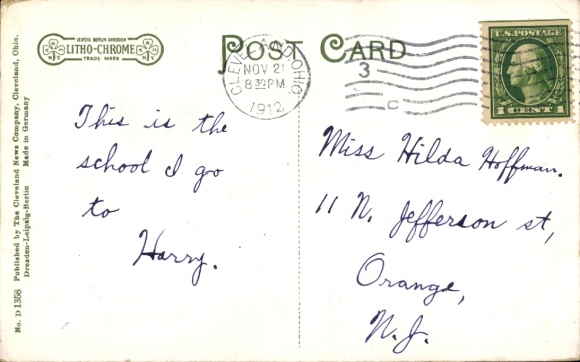 LEIPZIG BERLIN DRESDEN
LITHO-CHROME
TRADE MARK
POST CARD
CLEVELAND, OHIO.
NOV 21
8 30 PM
1912
3
C
U.S. POSTAGE
1 CENT 1
This is the
school I go
to
Harry.
Miss Hilda Hoffman.
11 N. Jefferson st,
Orange,
N.J.
No. D 1358 Published by The Cleveland News Company, Cleveland, Ohio.
Dresden-Leipzig-Berlin Made in Germany